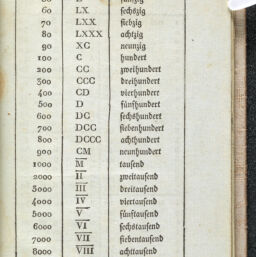 60 LX sechszig
70 LXX siebzig
80 LXXX achtzig
90 XC neunzig
100 C hundert
200 CC zweihundert
300 CCC dreihundert
400 CD vierhundert
500 D fünfhundert
600 DC sechshundert
700 DCC siebenhundert
800 DCCC achthundert
900 CM neunhundert
1000 M tausend
2000 I̅I̅ zweitausend
3000 I̅I̅I̅ dreitausend
4000 I̅V̅ viertausend
5000 V̅ fünftausend
6000 V̅I̅ sechstausend
7000 V̅I̅I̅ siebentausend
8000 V̅I̅I̅I̅ achttausend